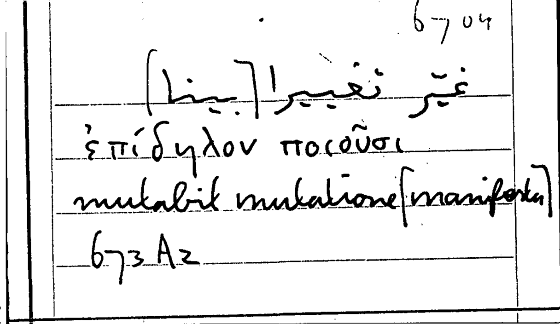 6704
غيّر تغييرا [بينا]
ἐπίδηλον ποιοῦσι
mutabit mutatione [manifesta]
673 A2